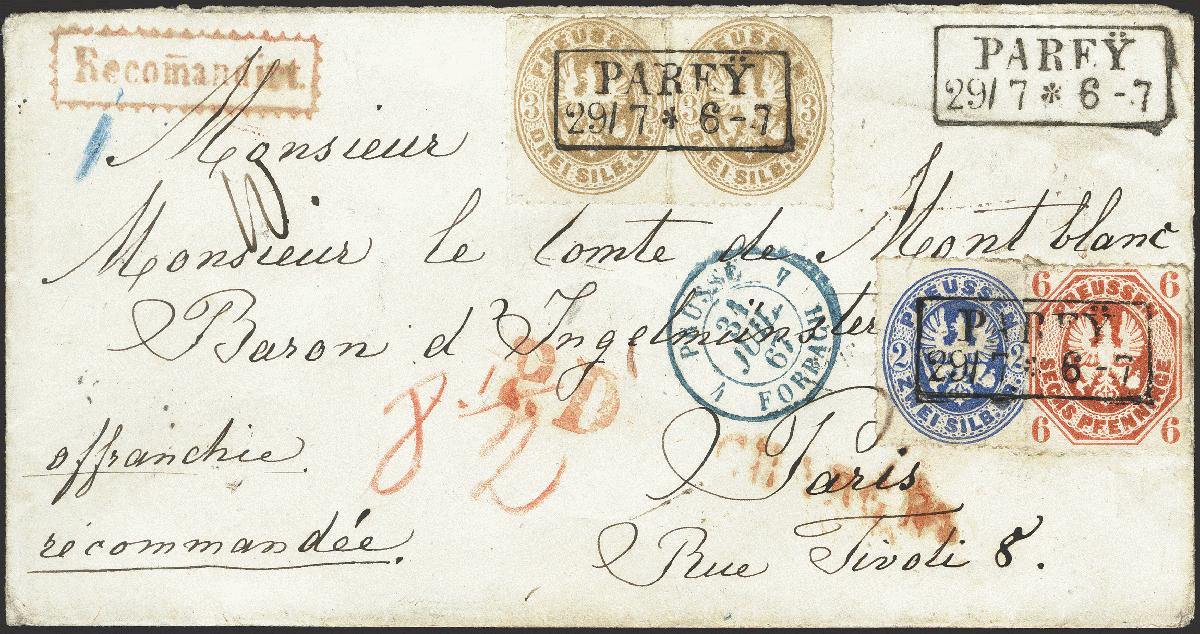 Recom̄andirt.
PREUSSEN
3 3
DREI SILB. GR.
PREUSSEN
3 3
DREI SILB. GR.
PAREŸ
29/7 * 6-7
PAREŸ
29/7 * 6-7
Monsieur
Monsieur le Comte de Montblanc
Baron d'Ingelmünster
PRUSSE
31
JUIL.
67
FORBACH
PREUSSEN
2 2
ZWEI SILB. GR.
6 6
PREUSSEN
SECHS PFENNIGE
6 6
PAREŸ
29/7 * 6-7
P.D.
8 1/2
affranchie.
Paris
CHARGÉ
recommandée.
Rue Tivoli 8.